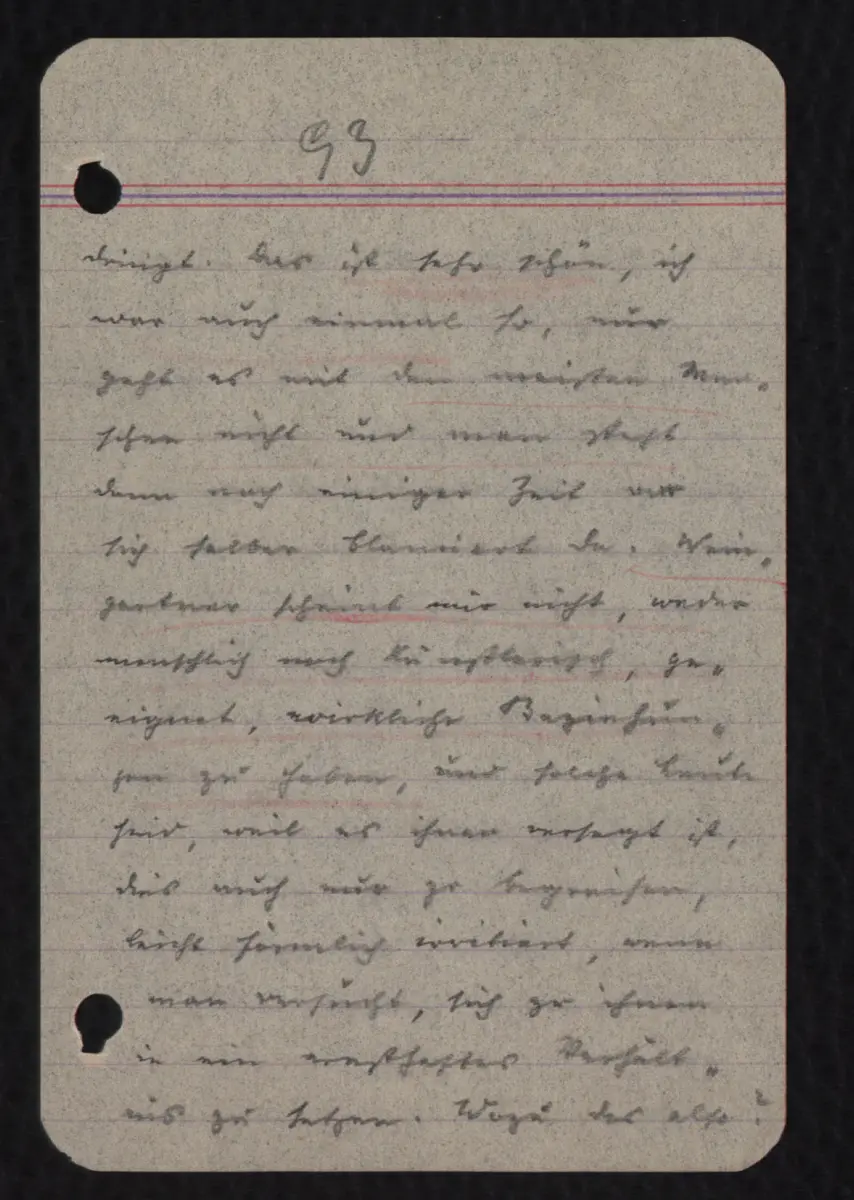 93
dringt. Das ist sehr schön, ich
war auch einmal so, nur
geht es mit den meisten Men„
schen nicht und man steht
dann nach einiger Zeit vor
sich selber blamiert da. Wein„
gartner scheint mir nicht, weder
menschlich noch künstlerisch, ge„
eignet, wirkliche Beziehun„
gen zu haben, und solche Leute
sind, weil es ihnen versagt ist,
dies auch nur zu begreifen,
leicht förmlich irritiert, wenn
man versucht, sich zu ihnen
in ein ernsthaftes Verhält„
nis zu setzen. Wozu das also?